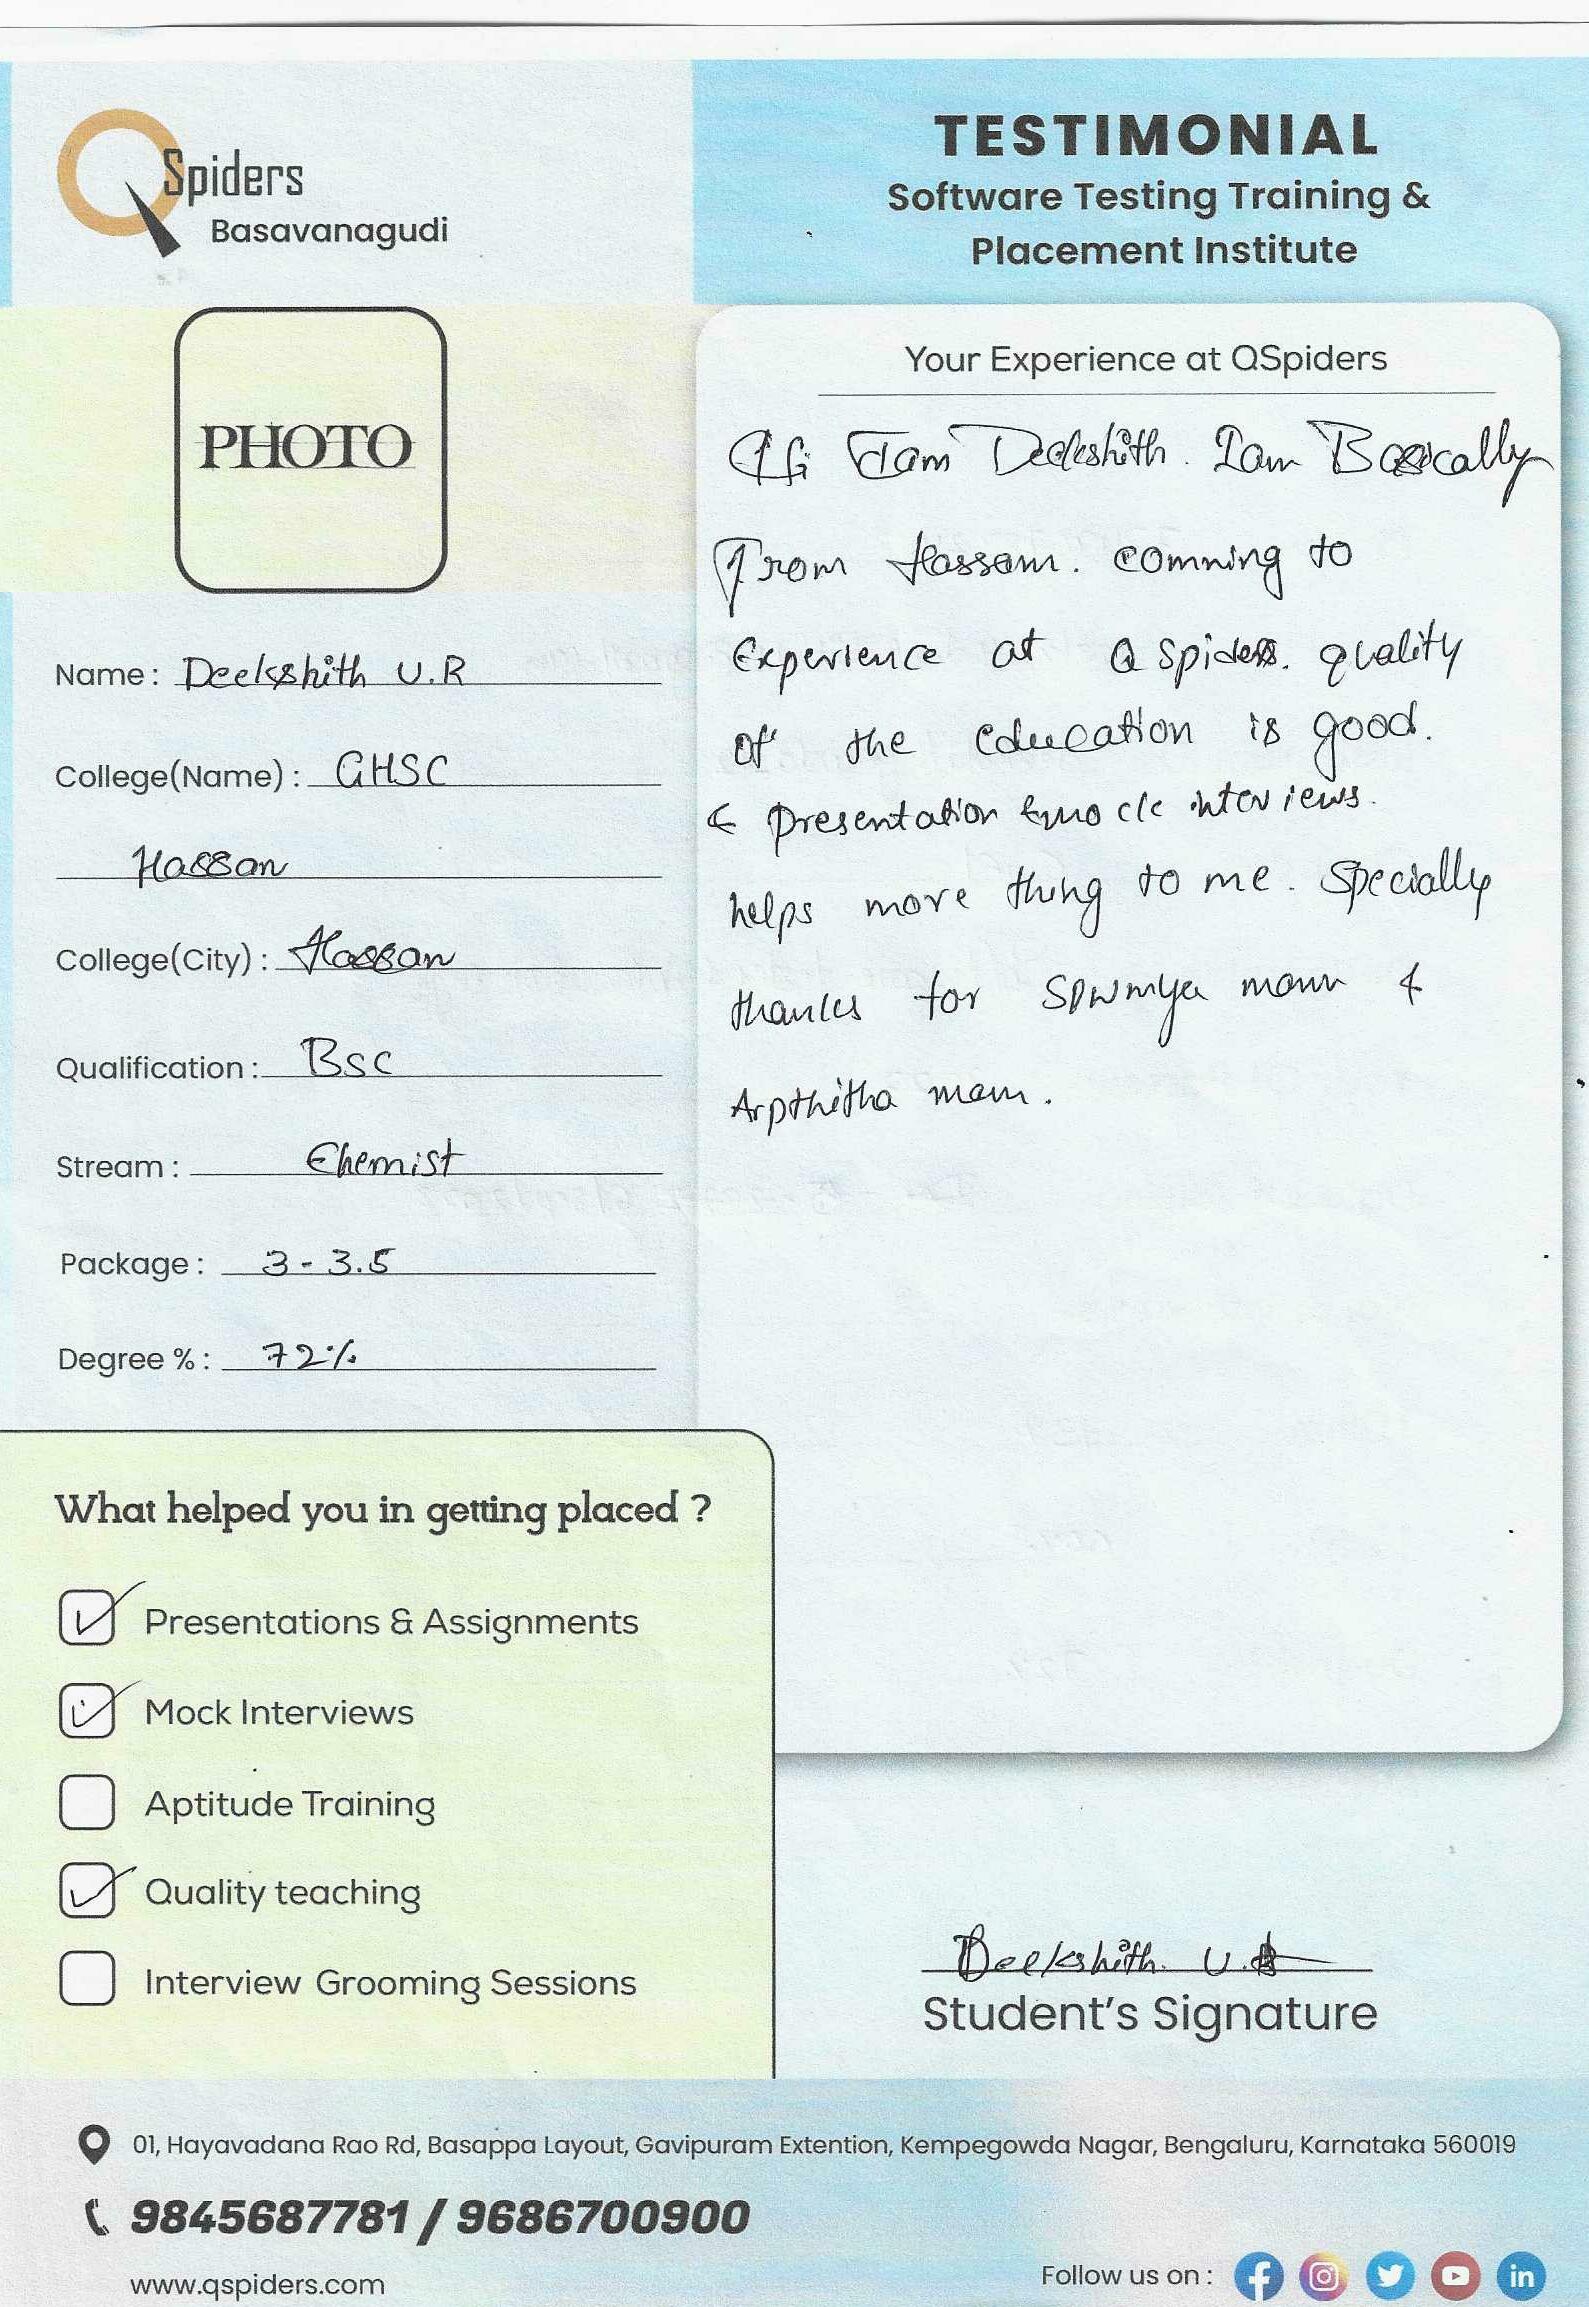 QSpiders
Basavanagudi
TESTIMONIAL
Software Testing Training &
Placement Institute
PHOTO
Name: Deekshith U.R
College(Name): GHSC
Hassan
College(City): Hassan
Qualification: Bsc
Stream: Chemist
Package: 3-3.5
Degree %: 72%
Your Experience at QSpiders
Hi I am Deekshith. I am Basically
From Hassan. comning to
Experience at Q Spiders. quality
of the education is good.
& presentation & mock interviews.
helps more thing to me. Specially
thanks for Sowmya mam &
Arpthitha mam.
What helped you in getting placed ?
Presentations & Assignments
Mock Interviews
Aptitude Training
Quality teaching
Interview Grooming Sessions
Deekshith. U.R
Student's Signature
01, Hayavadana Rao Rd, Basappa Layout, Gavipuram Extention, Kempegowda Nagar, Bengaluru, Karnataka 560019
9845687781 / 9686700900
www.qspiders.com
Follow us on :